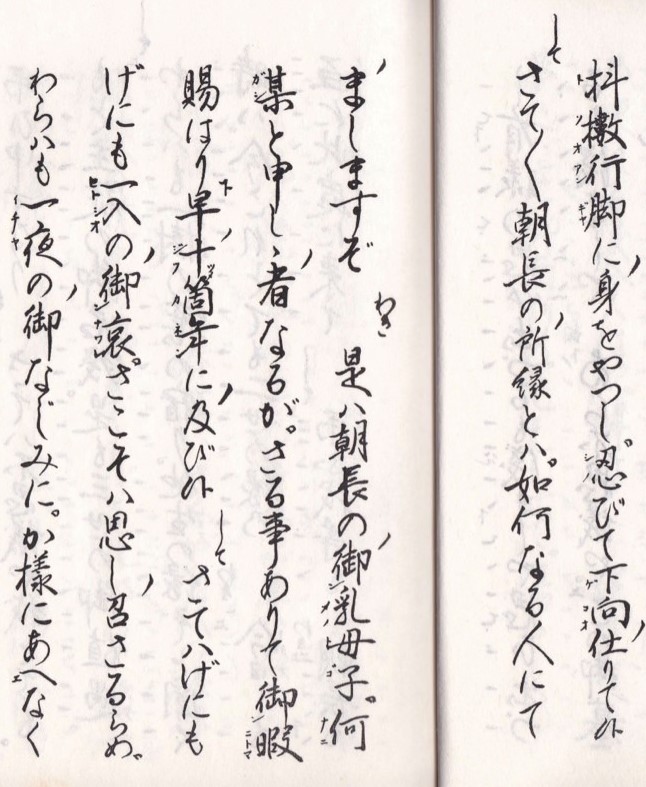 抖擻行脚に身をやつし。忍びて下向仕りて候
して さて〱朝長の所縁とハ。如何なる人にて
ましますぞ わき 是ハ朝長の御乳母子。何
某と申しゝ者なるが。さる事ありて御暇
賜はり早十箇年に及び候 して さてハげにも
げにも一入の御哀。さこそハ思し召さるらめ。
わらハも一夜の御なじみに。か様にあへなく